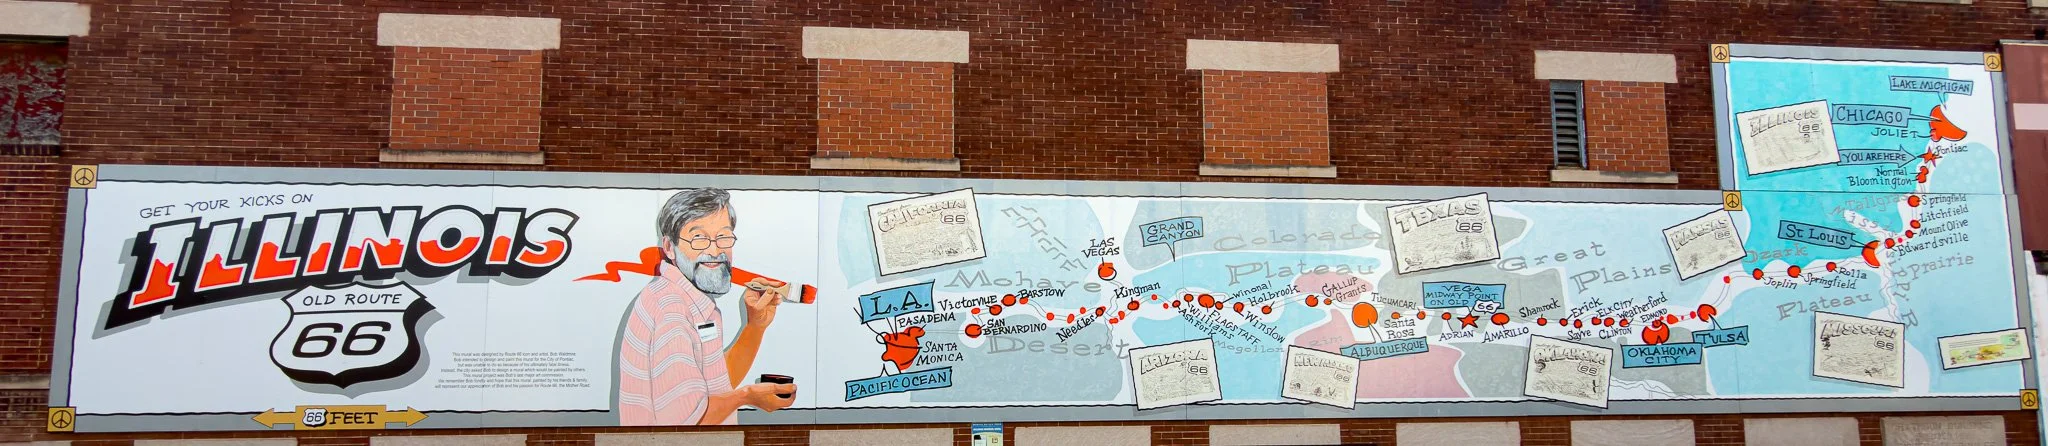 GET YOUR KICKS ON
ILLINOIS
OLD ROUTE
66
This mural was designed by Route 66 icon and artist, Bob Waldmire.
Bob intended to design and paint this mural for the City of Pontiac,
but was unable to do so because of his ultimately fatal illness.
Instead, the city asked Bob to design a mural which would be painted by others.
This mural project was Bob's last major art commission.
We remember Bob fondly and hope that this mural, painted by his friends & family,
will represent our appreciation of Bob and his passion for Route 66, the Mother Road.
66 FEET
CALIFORNIA
66
L.A.
PASADENA
SANTA
MONICA
PACIFIC OCEAN
Victorville
BARSTOW
SAN
BERNARDINO
Mohave
Desert
LAS
VEGAS
Needles
Kingman
GRAND
CANYON
Colorado
Plateau
Ash Fork
Williams
FLAGSTAFF
Winona!
Winslow
Holbrook
Mogollon
Rim
ARIZONA
66
GALLUP
Grants
NEW MEXICO
ALBUQUERQUE
TUCUMCARI
Santa
Rosa
TEXAS
66
VEGA
MIDWAY POINT
ON OLD 66
ADRIAN
AMARILLO
Great
Plains
Shamrock
Erick
Sayre
ELK CITY
CLINTON
Weatherford
EDMOND
OKLAHOMA
66
OKLAHOMA
CITY
TULSA
KANSAS
66
Ozark
Plateau
Joplin
Springfield
Rolla
MISSOURI
66
ST. LOUIS
Edwardsville
Mount Olive
Litchfield
Springfield
Tallgrass
Prairie
Bloomington
Normal
YOU ARE HERE
Pontiac
JOLIET
CHICAGO
LAKE MICHIGAN
ILLINOIS
66